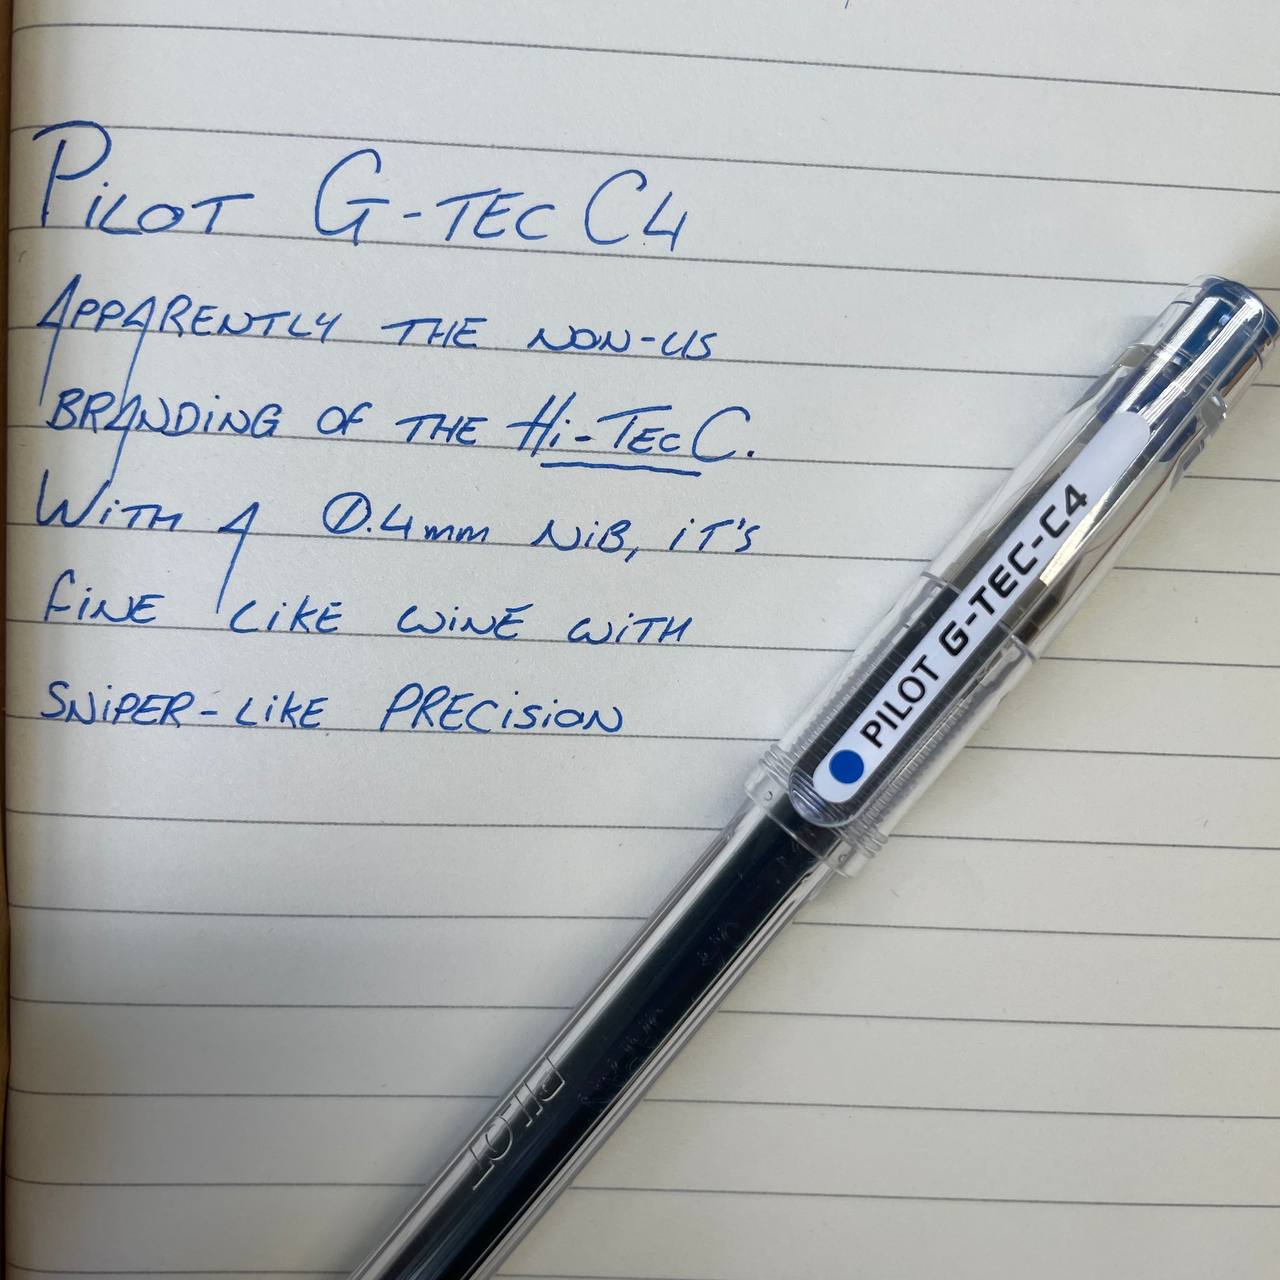 PiLOT G-TEC C4
APPARENTLY THE NON-US
BRANDiNG OF THE Hi-TEC C.
WiTH A 0.4mm NiB, iT'S
FiNE LiKE WiNE WiTH
SNiPER-LiKE PRECiSiON
PILOT G-TEC-C4
PILOT